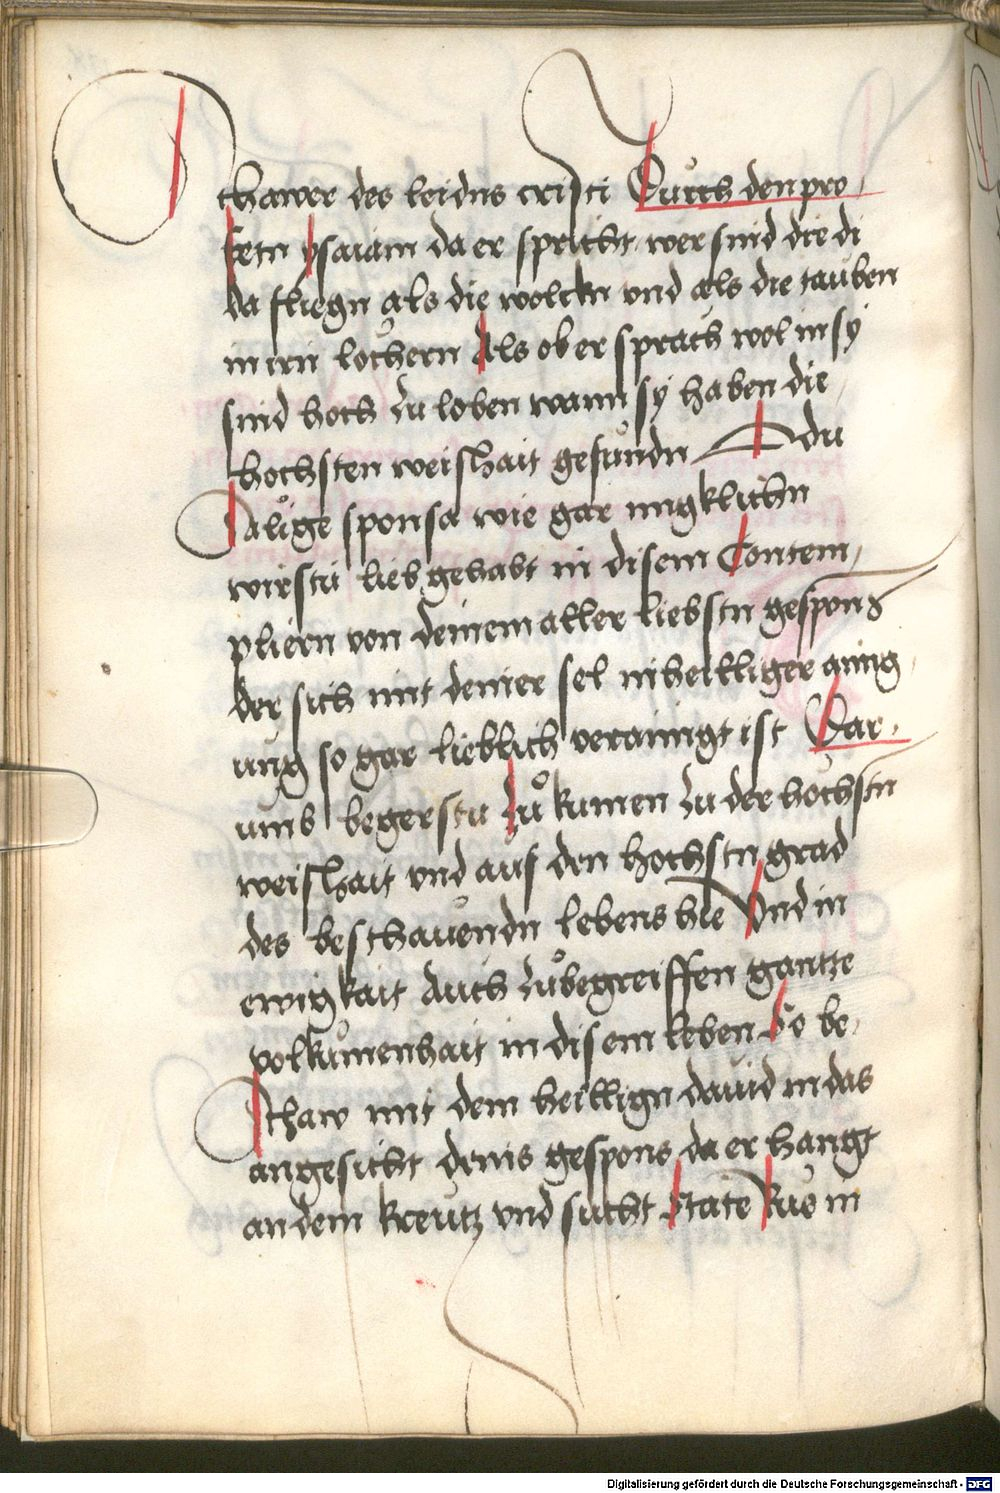 schawer des leidns cristi Durch den pro-
fetn ysaiam da er spricht wer sind die di
da fliegn als die wolckn vnd als die tauben
in irn lochern Als ob er sprach wol in sy
sind hoch zu loben wann sy haben die
hochsten weishait gefundn O du
sålige sponsa wie gar inngklichn
wirstu lieb gehabt in disem Contem-
pliern von deinem aller liebstn gespons
der sich mit deiner sel in heilliger ainig
ung so gar lieblich verainigt ist Dar-
umb begerstu zů kumen zu der hochstn
weishait vnd auf den hochstn grad
des beschauendn lebens hie Vnd in
ewigkait Auch zů begreiffen gantze
volkumenhait in disem leben So be-
schaw mit dem heillign dauid in das
angesicht deins gespons da er hangt
an dem kreutz vnd sucht state rue in
Digitalisierung gefördert durch die Deutsche Forschungsgemeinschaft - DFG